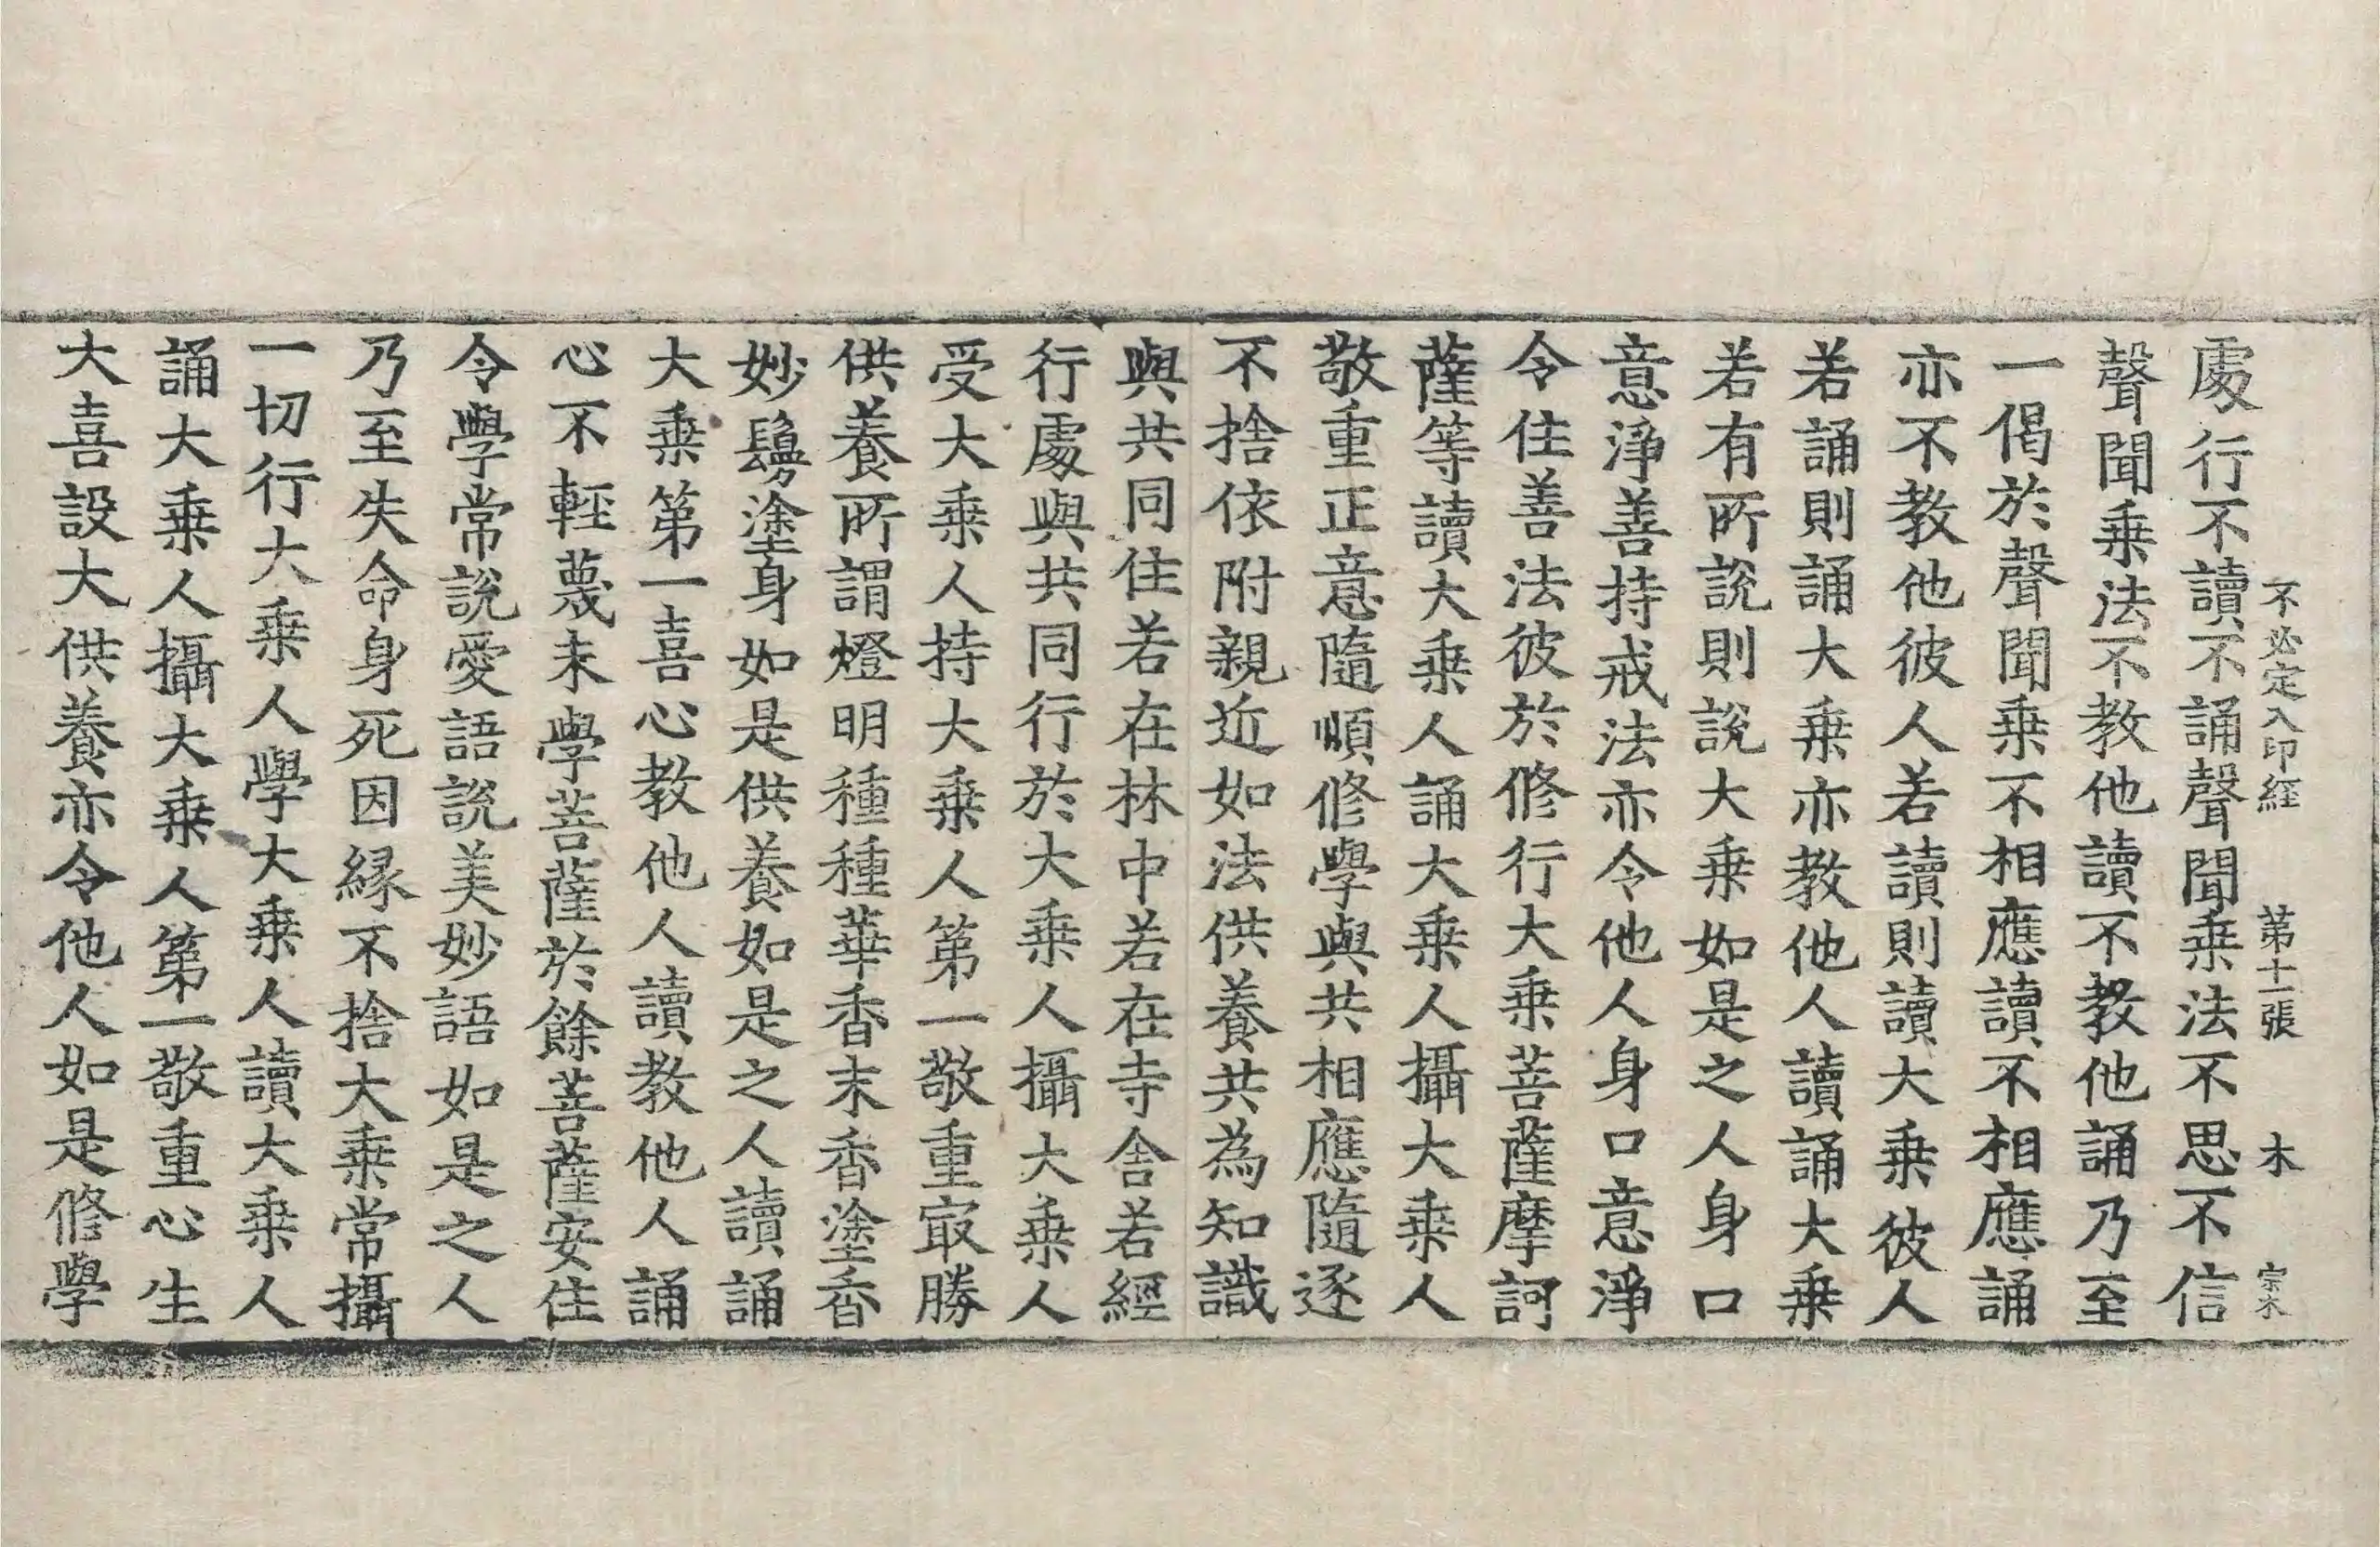 不必定入印經 第十一張 木 宗木
處行不讀不誦聲聞乗法不思不信
聲聞乗法不教他讀不教他誦乃至
一偈於聲聞乗不相應讀不相應誦
亦不教他彼人若讀則讀大乗彼人
若誦則誦大乗亦教他人讀誦大乗
若有所說則說大乗如是之人身口
意淨善持戒法亦令他人身口意淨
令住善法彼於修行大乗菩薩摩訶
薩等讀大乗人誦大乗人攝大乗人
敬重正意隨順修學與共相應隨逐
不捨依附親近如法供養共為知識
與共同住若在林中若在寺舍若經
行處與共同行於大乗人攝大乗人
受大乗人持大乗人第一敬重㝡勝
供養所謂燈明種種華香末香塗香
妙鬘塗身如是供養如是之人讀誦
大乗第一喜心教他人讀教他人誦
心不輕蔑未學菩薩於餘菩薩安住
令學常說愛語說美妙語如是之人
乃至失命身死因縁不捨大乗常攝
一切行大乗人學大乗人讀大乗人
誦大乗人攝大乗人第一敬重心生
大喜設大供養亦令他人如是修學